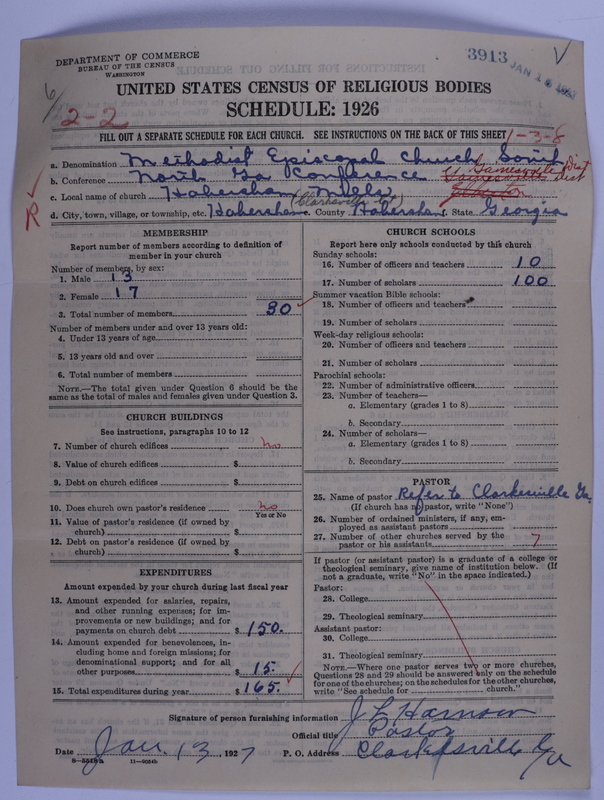 DEPARTMENT OF COMMERCE
BUREAU OF THE CENSUS
WASHINGTON
3913
UNITED STATES CENSUS OF RELIGIOUS BODIES
SCHEDULE: 1926
2-2
FILL OUT A SEPARATE SCHEDULE FOR EACH CHURCH. SEE INSTRUCTIONS ON THE BACK OF THIS SHEET
1-3-8
a. Denomination Methodist Episcopal Church, South
b. Conference North Ga Conference Gainesville Dist
c. Local name of church Habersham Mills
(Clarksville Ga)
d. City, town, village, or township, etc. Habersham e. County Habersham f. State Georgia
R
MEMBERSHIP
Report number of members according to definition of member in your church
Number of members, by sex:
1. Male 13
2. Female 17
3. Total number of members 30
Number of members under and over 13 years old:
4. Under 13 years of age
5. 13 years old and over
6. Total number of members
NOTE.—The total given under Question 6 should be the
same as the total of males and females given under Question 3.
CHURCH BUILDINGS
See instructions, paragraphs 10 to 12
7. Number of church edifices no
8. Value of church edifices $
9. Debt on church edifices $
10. Does church own pastor's residence no
Yes or No
11. Value of pastor's residence (if owned by
church) $
12. Debt on pastor's residence (if owned by
church) $
EXPENDITURES
Amount expended by your church during last fiscal year
13. Amount expended for salaries, repairs,
and other running expenses; for im-
provements or new buildings; and for
payments on church debt $ 150.
14. Amount expended for benevolences, in-
cluding home and foreign missions; for
denominational support; and for all
other purposes $ 15.
15. Total expenditures during year $ 165.
CHURCH SCHOOLS
Report here only schools conducted by this church
Sunday schools:
16. Number of officers and teachers 10
17. Number of scholars 100
Summer vacation Bible schools:
18. Number of officers and teachers
19. Number of scholars
Week-day religious schools:
20. Number of officers and teachers
21. Number of scholars
Parochial schools:
22. Number of administrative officers
23. Number of teachers—
a. Elementary (grades 1 to 8)
b. Secondary
24. Number of scholars—
a. Elementary (grades 1 to 8)
b. Secondary
PASTOR
25. Name of pastor Refer to Clarkesville Ga.
(If church has no pastor, write "None")
26. Number of ordained ministers, if any, em-
ployed as assistant pastors
27. Number of other churches served by the
pastor or his assistants 7
If pastor (or assistant pastor) is a graduate of a college or
theological seminary, give name of institution below. (If
not a graduate, write "No" in the space indicated.)
Pastor:
28. College
29. Theological seminary
Assistant pastor:
30. College
31. Theological seminary
NOTE.—Where one pastor serves two or more churches,
Questions 28 and 29 should be answered only on the schedule
for one of the churches; on the schedules for the other churches,
write "See schedule for church."
Signature of person furnishing information
Official title Pastor
Date Jan. 13, 1927 P. O. Address Clarkesville Ga
8-5518a 11-9054b